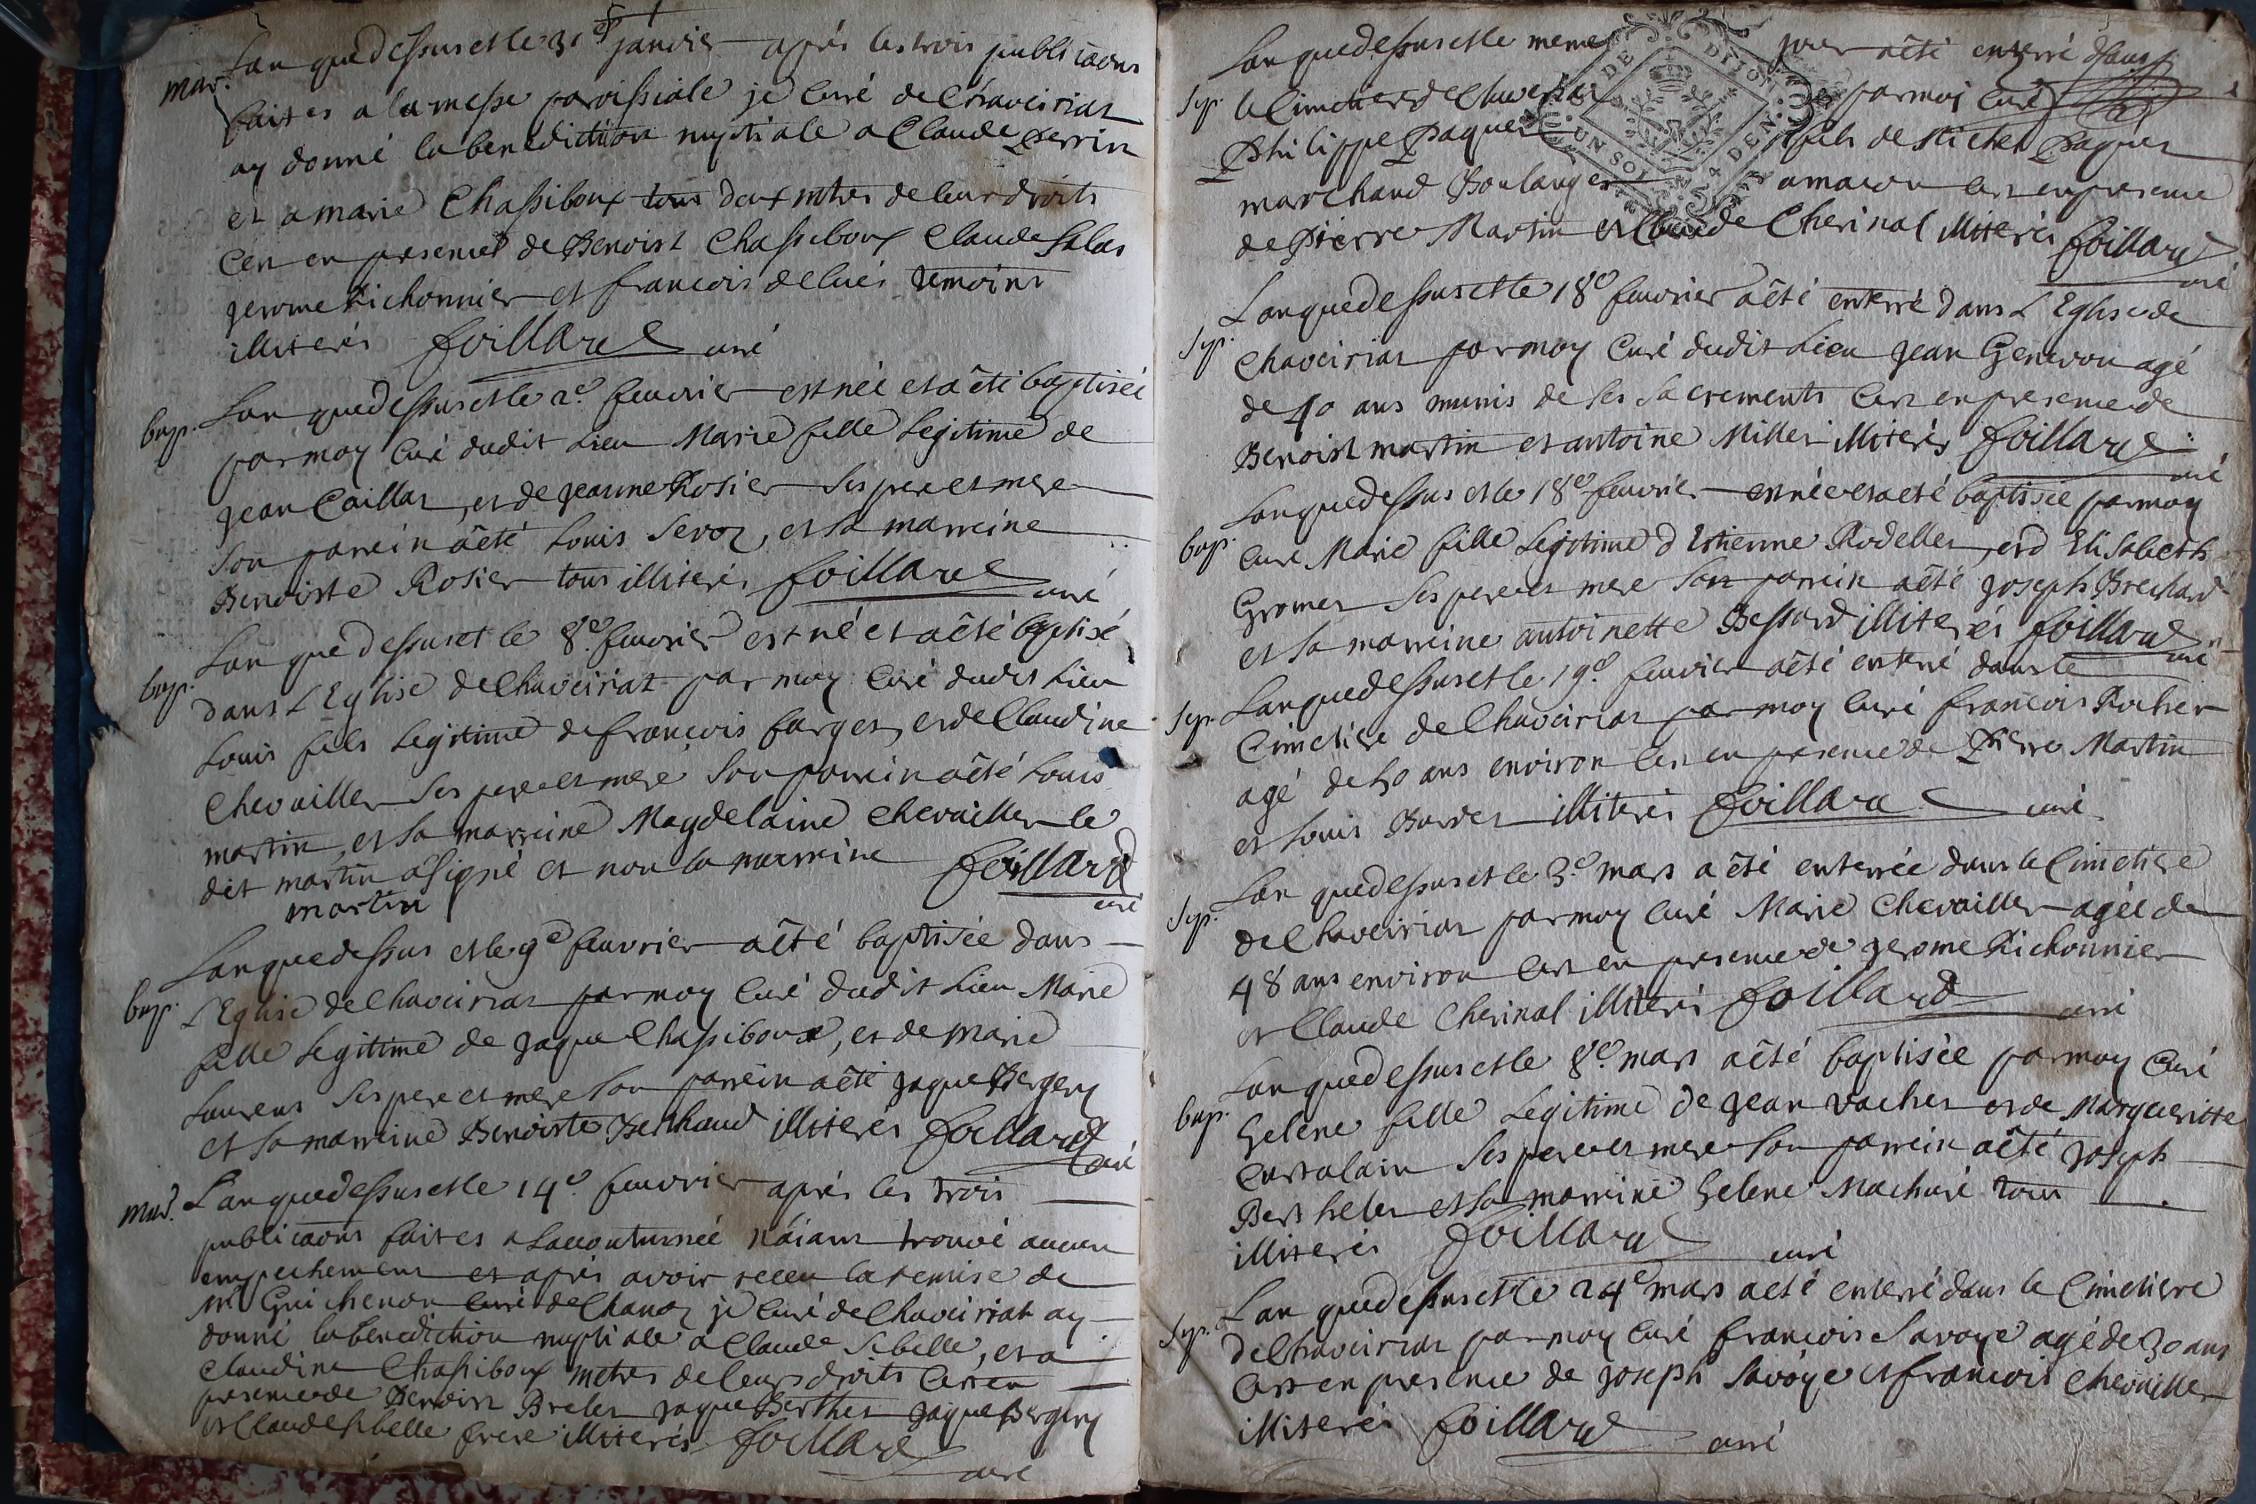 mar. Lan que dessus et le 31e janvier après les trois publicaons
faites a la messe paroissiale je Curé de Chaveiriat
ay donné la benediction nuptiale a Claude Perrin
et a marie Chassiboux tous deux mtres de leur droits
Cen en presence de Benoist Chassiboux Claude Salas
jerome Richonnier et francois de lués temoins
illiterés foillard curé
bap. Lan que dessus et le 2e fevvrier est née et a êté baptisée
par moy Curé dudit Lieu Marie fille Legitime de
jean Caillat, et de jeanne Rosier ses pere et mere
son parrein a êté Louis Sevoz, et sa marreine
Benoiste Rosier tous illiterés foillard curé
bap. Lan que dessus et le 8e fevvrier est né et a êté baptisé
dans L'Eglise de Chaveiriat par moy Curé dudit Lieu
Louis fils Legitime de francois farges, et de Claudine
Chevailler ses pere et mere son parrein a êté Louis
martin, et sa marreine Magdelaine Chevailler le
dit martin a signé et non la marreine foillard
martin curé
Lan que dessus et le 9e fevvrier a êté baptisée dans
bap. L'Eglise de Chaveiriat par moy Curé dudit Lieu Marie
fille Legitime de jaque Chassiboux, et de Marie
Laurent ses pere et mere son parrein a êté jaque Bergery
et sa marreine Benoiste Berthaud illiterés foillard
curé
mar. Lan que dessus et le 14e fevvrier après les trois
publicaons faites a laccouturnée n'áiant trouvé aucun
empechement et après avoir receu la remise de
Mr Guichenon Curé de Chanoz je Curé de Chaveiriat ay
donné la benediction nuptiale a Claude Sibelle, et a
Claudine Chassiboux metres de leurs droits Cen en
presence de Benoist Breler jaque Berther jaque Bergery
et Claude Sibelle frere illiterés foillard
curé
Lan que dessus et le meme jour a êté enterré dans
sep. le Cimetiere de Chaveiriat par moy Curé
Philippe Paquet fils de Michel Paquet
marchand Boulanger a macon Cen en presence
de Pierre Martin et Claude Cherinal illiterés foillard
curé
DE DIJON
UN SOL
DEN.
Lan que dessus et le 18e fevvrier a êté enterré dans L'Eglise de
sep. Chaveiriat par moy Curé dudit Lieu jean Genevou agé
de 40 ans munis de ses sacrements Cen en presence de
Benoist martin et antoine Miller illiterés foillard
curé
Lan que dessus et le 18e fevvrier est née et a eté baptisée par moy
bap. Curé Marie fille Legitime d'Estienne Rodeller, et d'Elisabeth
Gromer ses pere et mere son parrein a êté joseph Brechard
et sa marreine antoinette Bessard illiterés foillard
curé
Lan que dessus et le 19e fevvrier a êté enterré dans le
sep. Cimetiere de Chaveiriat par moy Curé francois Rocher
agé de 50 ans environ Cen en presence de Pierre Martin
et Louis Bordet illiterés foillard curé
Lan que dessus et le 3e mars a êté enterrée dans le Cimetiere
sep. de Chaveiriat par moy Curé Marie Chevailler agée de
48 ans environ Cen en presence de jerome Richonnier
et Claude Cherinal illiterés foillard curé
Lan que dessus et le 8e mars a êté baptisée par moy Curé
bap. helene fille Legitime de jean Vacher et de Margueritte
Curtalain ses pere et mere son parrein a êté joseph
Bertheler et sa marreine helene Machuré tous
illiterés foillard curé
Lan que dessus et le 24e mars a eté enterré dans le Cimetiere
sep. de Chaveiriat par moy Curé francois Savoye agé de 30 ans
Cen en presence de joseph Savoye et francois Chevailler
illiterés foillard curé